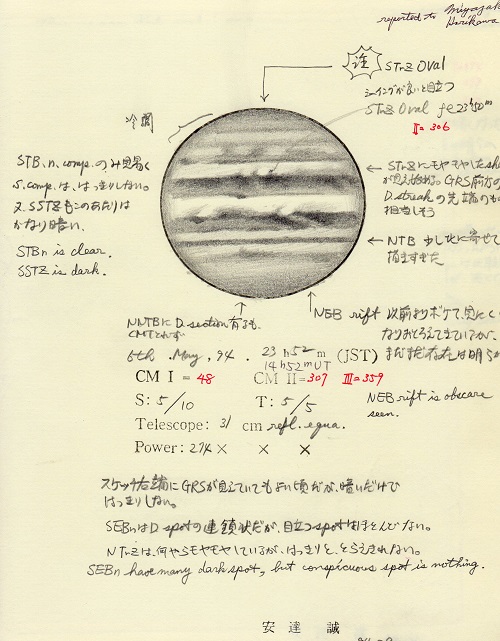 reported to Miyazaki
Horikawa
注
STrZ Oval
シーイングが良いと目立つ
STrZ Oval fe 23h50m
II= 306
STB.n.comp.のみ見易く
S.comp.は、はっきりしない。
又SSTZもこのあたりは
かなり暗い。
STBn is clear.
SSTZ is dark.
STrZにモヤモヤした
GRS前方の
D.streakの先端のも
担当しそう
NTB 少し北に寄せて
描きすぎた
NNTBにD.section有るも
CMTとれず
NEB rift 以前よりボケて、見にく
なりおとろえてきているが、
まだまだ存在は明らか
6th. May. 94. 23h52m (JST)
14h52mUT
CM I = 48 CM II = 307 III=359
S: 5/10 T: 5/5
NEB rift is obscare
seen.
Telescope: 31 cm refl. equa.
Power: 274 × × ×
スケッチ右端にGRSが見えていてもよい頃だが、暗いだけで
はっきりしない。
SEBnはD spotの連鎖状だが、目立つspotはほとんどない。
NTrZは、何やらモヤモヤしているが、はっきりと、とらえきれない。
SEBn have many dark spot, but conspicuous spot is nothing.
安達 誠